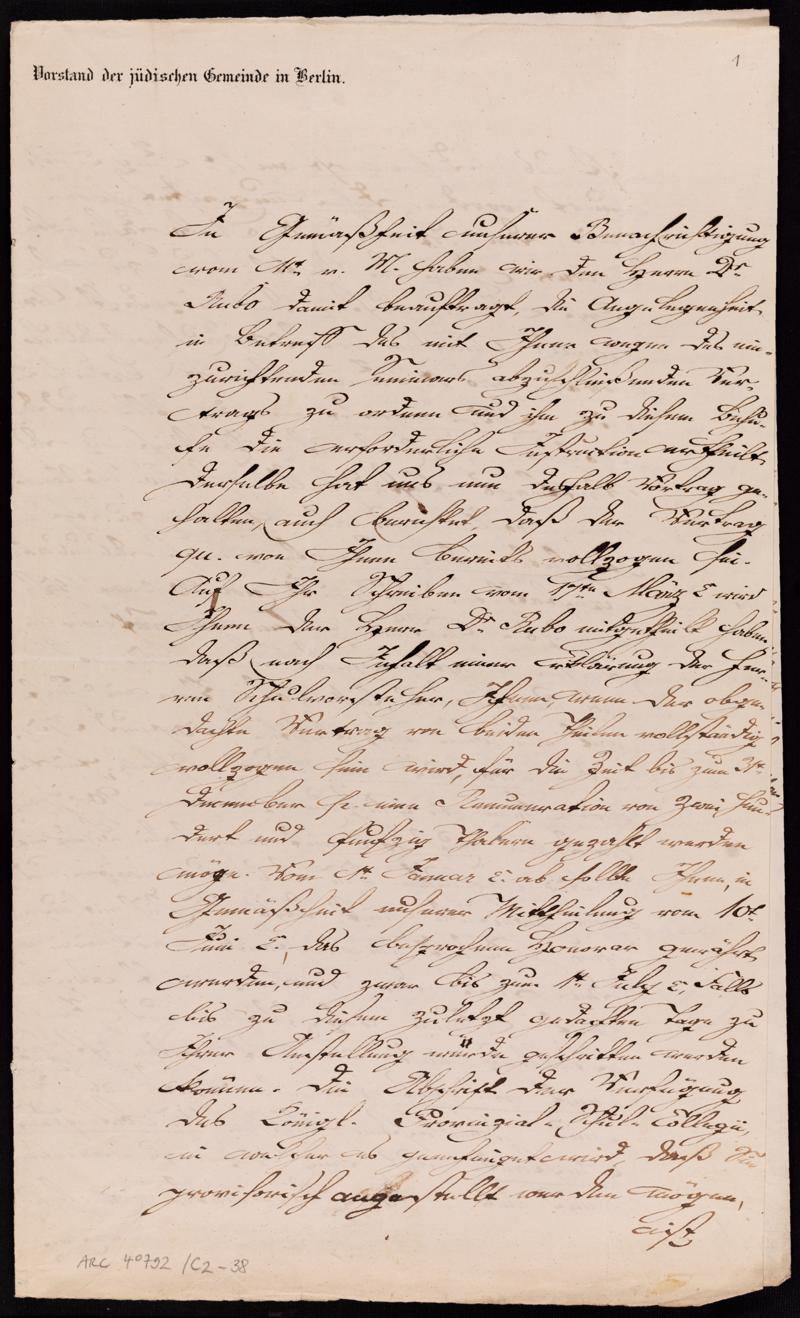 1
Vorstand der jüdischen Gemeinde in Berlin.
In Gemäßheit unserer Benachrichtigung
vom v. M. haben wir den Herrn Dr
Rubo damit beauftragt, die Angelegenheit
in Betreff des mit Ihnen wegen des ein-
zurichtenden Seminars abzuschließenden Ver-
trags zu ordnen und ihm zu diesem Behu-
fe die erforderliche Instruction ertheilt.
Derselbe hat uns nun deshalb Vortrag ge-
halten, auch berichtet, daß der Vertrag
qu. von Ihnen bereits vollzogen sei.
Auf Ihr Schreiben vom 17ten März c wird
Ihnen der Herr Dr Rubo mitgetheilt haben
daß nach Inhalt einer Erklärung der Her-
ren Schulvorsteher, Ihnen, wenn der obge-
dachte Vertrag von beiden Theilen vollständig
vollzogen sein wird, für die Zeit bis zum 31ten
December pr. eine Remuneration von zwei hun-
dert und funfzig Thalern gezahlt werden
möge. Vom 1t Januar c. ab sollte Ihnen, in
Gemäßheit unserer Mittheilung vom 10t
Juni c., das besprochene Honorar gewährt
werden, und zwar bis zum 1t July c, falls
bis zu diesem zuletzt gedachten Tage zu
Ihrer Anstellung würde geschritten werden
können. Die Abschrift der Verfügung
des Königl. Provinzial-Schul-Collegii,
in welcher es genehmigt wird, daß Sie
provisorisch angestellt werden mögen,
ist
ARC 4°792 /C2-38